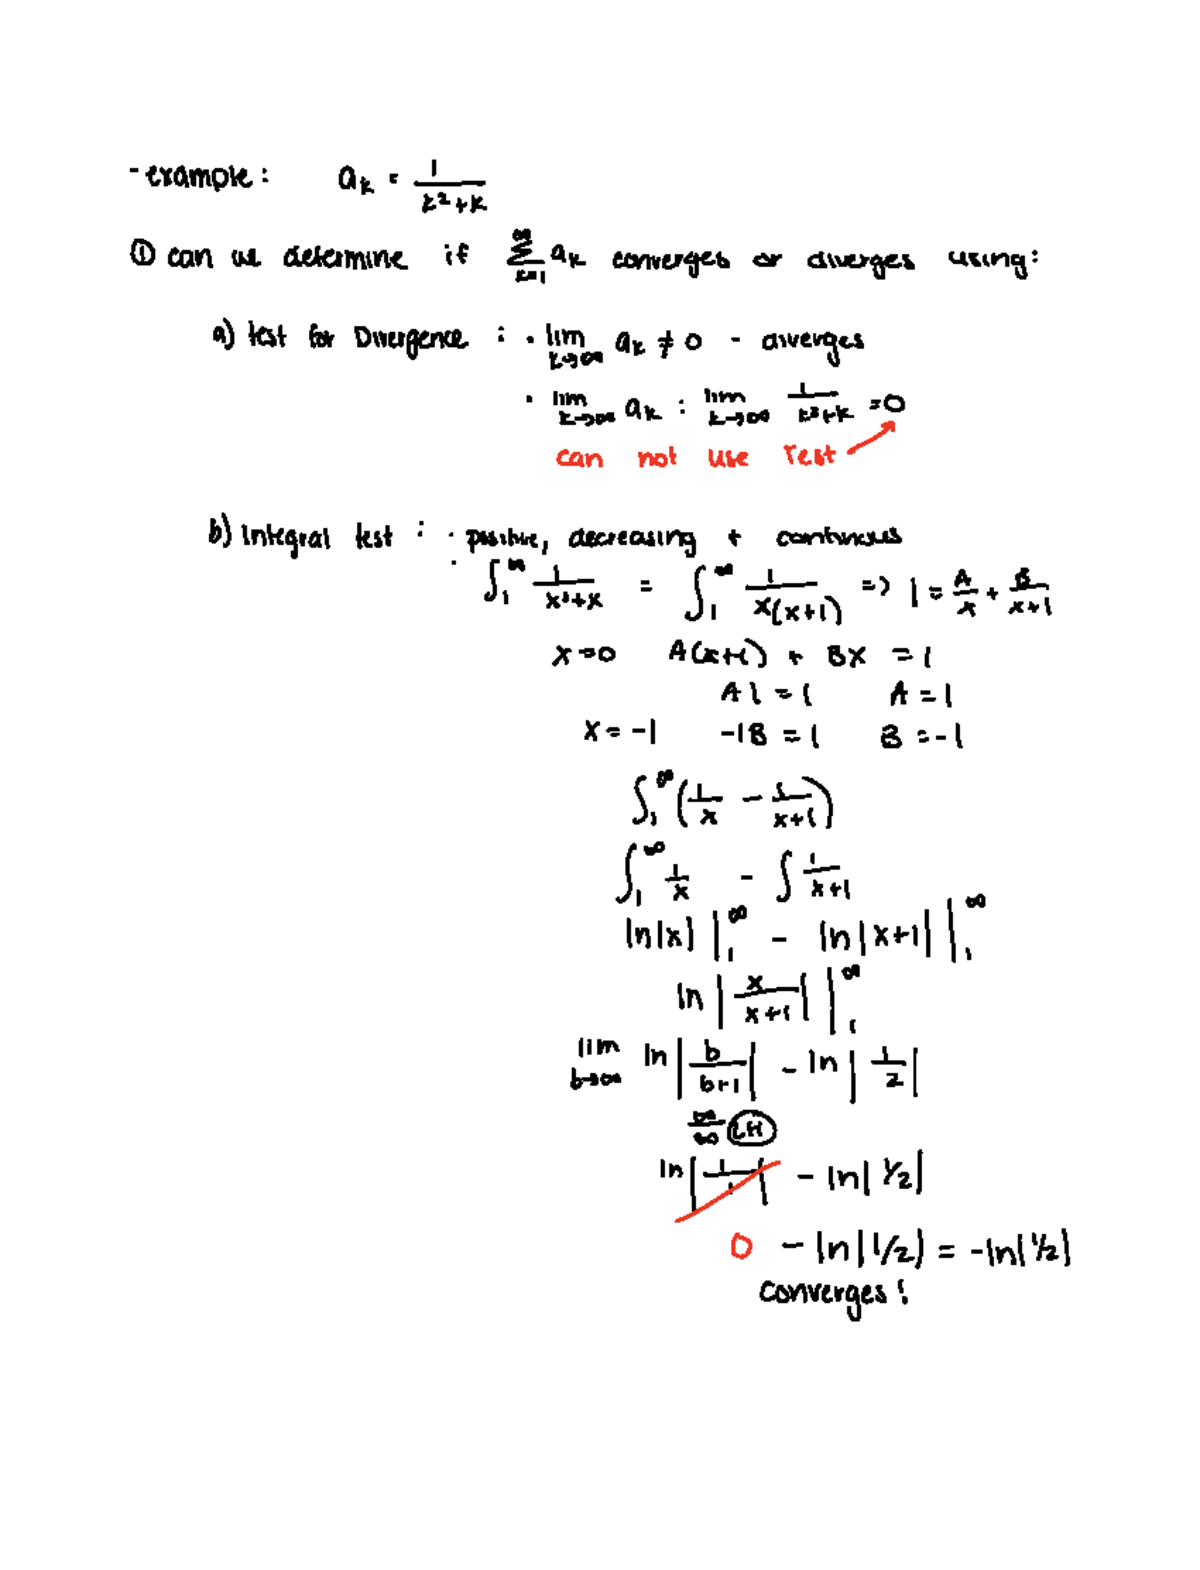 - example: a_k = 1/(k²+k)
① can we determine if ∑_{k=1}^∞ a_k converges or diverges using:
a) test for Divergence : · lim_{k→∞} a_k ≠ 0 - diverges
· lim_{k→∞} a_k : lim_{k→∞} 1/(k²+k) = 0
can not use Test
b) Integral test : · positive, decreasing + continuous
· ∫₁^∞ 1/(x²+x) = ∫₁^∞ 1/(x(x+1)) => 1 = A/x + B/(x+1)
x=0 A(x+1) + Bx = 1
A1 = 1 A = 1
x = -1 -1B = 1 B = -1
∫₁^∞ (1/x - 1/(x+1))
∫₁^∞ 1/x - ∫ 1/(x+1)
ln|x| |₁^∞ - ln|x+1| |₁^∞
ln|x/(x+1)| |₁^∞
lim_{b→∞} ln|b/(b+1)| - ln|1/2|
∞/∞ LH
ln|1/1| - ln|1/2|
0 - ln|1/2| = -ln|1/2|
converges!